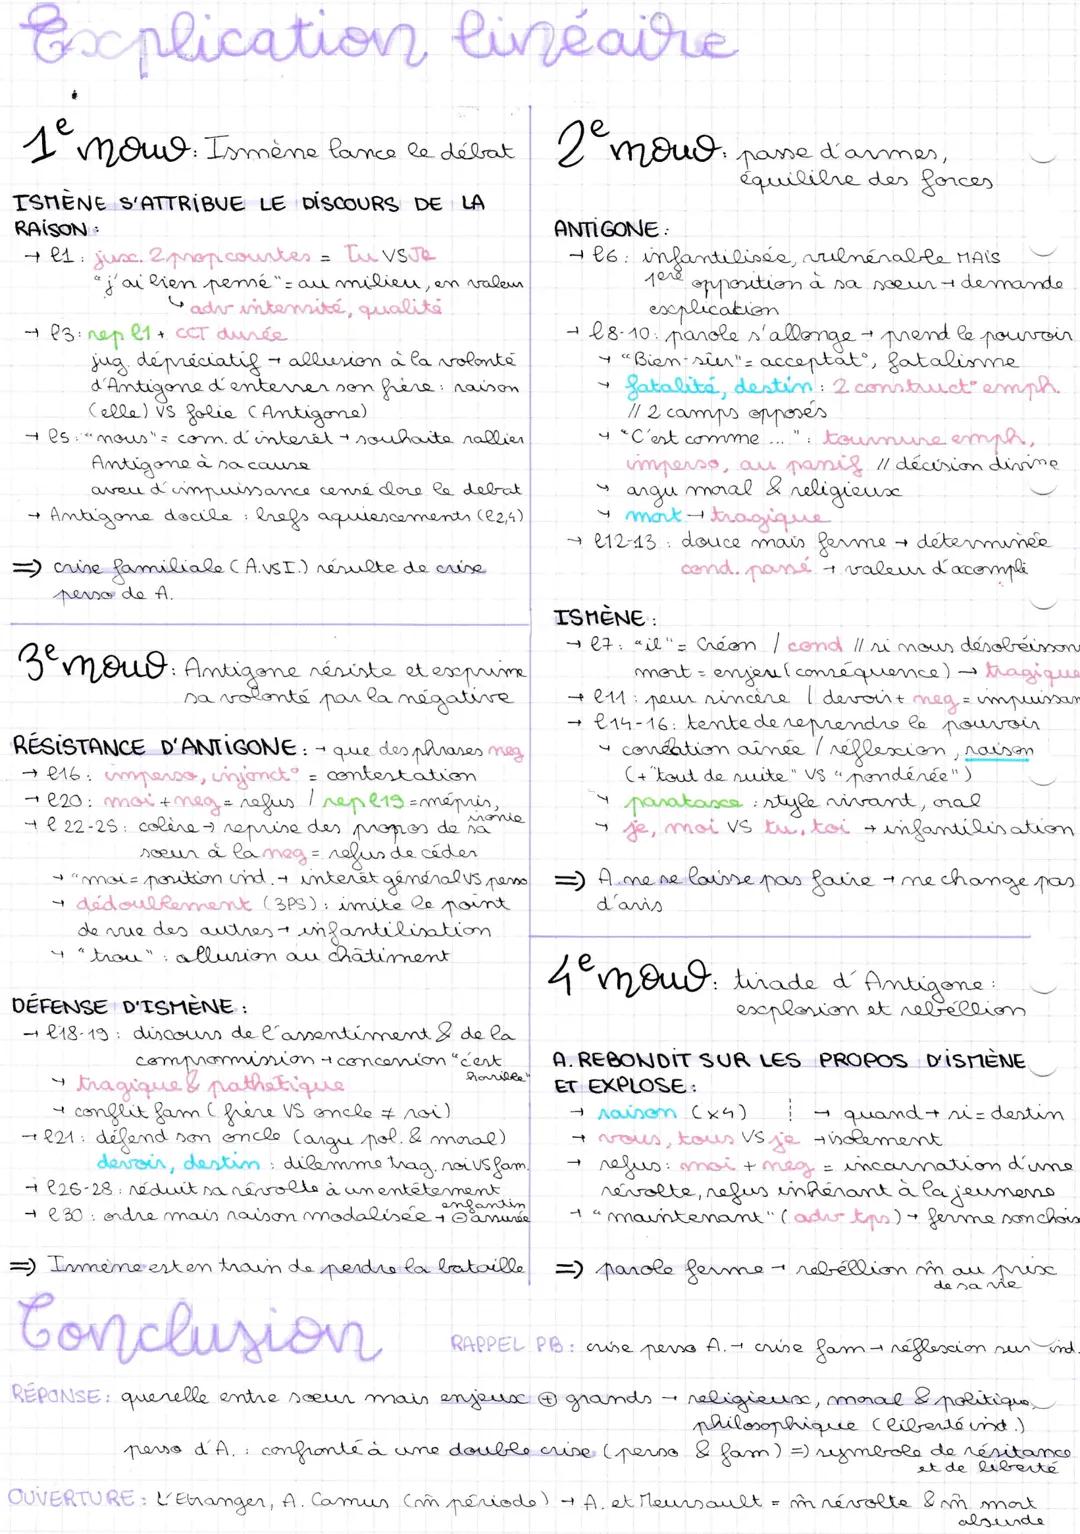 Explication linéaire
1e mouv: Ismène lance le débat
ISMÈNE S'ATTRIBUE LE DISCOURS DE LA
RAISON:
→ l1: jux. 2 prop courtes = Tu VS Je
"j'ai bien pensé" = au milieu, en valeur
↳ adv intensité, qualité
→ l3: rep l1 + CCT durée
jug. dépréciatif → allusion à la volonté
d'Antigone d'enterrer son frère: raison
(elle) VS folie (Antigone)
→ l5: "nous" = com. d'interêt → souhaite rallier
Antigone à sa cause
aveu d'impuissance censé clore le debat
→ Antigone docile: brefs aquiescements (l2,4)
⇒ crise familiale (A.VS I.) résulte de crise
perso de A.
2e mouv: passe d'armes,
équilibre des forces
ANTIGONE:
→ l6: infantilisée, vulnérable MAIS
1ère opposition à sa sœur → demande
explication
→ l8-10: parole s'allonge → prend le pouvoir
↳ "Bien-sûr" = acceptat°, fatalisme
↳ fatalité, destin: 2 construct° emph.
// 2 camps opposés
↳ "C'est comme ...": tournure emph,
imperso, au passif // décision divine
↳ argu moral & religieux
↳ mort → tragique
→ l12-13: douce mais ferme → déterminée
cond. passé → valeur d'acompli
ISMÈNE:
→ l7: "il" = Créon / cond // si nous désobéisson
mort = enjeu (conséquence) → tragique
→ l11: peur sincère / devoir + neg = impuissan
→ l14-16: tente de reprendre le pouvoir
↳ corrélation ainée / réflexion, raison
(+ "tout de suite" VS "pondérée")
↳ parataxe: style vivant, oral
↳ je, moi VS tu, toi → infantilisation
⇒ A. ne se laisse pas faire → ne change pas
d'avis
3e mouv: Antigone résiste et exprime
sa volonté par la négative
RÉSISTANCE D'ANTIGONE: → que des phrases neg
→ l16: imperso, injonct° = contestation
→ l20: moi + neg = refus / rep l19 = mépris,
ironie
→ l22-25: colère → reprise des propos de sa
soeur à la neg = refus de céder
↳ "moi = position ind. → interêt général VS perso
↳ dédoublement (3PS): imite le point
de vue des autres → infantilisation
↳ "trou": allusion au châtiment
DÉFENSE D'ISMÈNE:
→ l18-19: discours de l'assentiment & de la
compromission → concession "c'est
horrible"
↳ tragique & pathétique
↳ conflit fam (frère VS oncle ≠ roi)
→ l21: défend son oncle (argu pol. & moral)
devoir, destin: dilemme trag. roi VS fam.
→ l26-28: réduit sa révolte à un entêtement
enfantin
→ l30: ordre mais raison modalisée → ⊖ assurée
⇒ Ismène est en train de perdre la bataille
4e mouv: tirade d'Antigone:
explosion et rebéllion
A. REBONDIT SUR LES PROPOS D'ISMÈNE
ET EXPLOSE:
→ raison (x4) → quand + si = destin
→ vous, tous VS je → isolement
→ refus: moi + neg = incarnation d'une
révolte, refus inhérant à la jeunesse
→ "maintenant" (adv tps) → ferme son choix
⇒ parole ferme → rebéllion m̂ au prix
de sa vie
Conclusion
RAPPEL PB: crise perso A. → crise fam → réflexion sur ind.
RÉPONSE: querelle entre soeur mais enjeux ⊕ grands → religieux, moral & politique,
philosophique (liberté ind.)
perso d'A.: confronté à une double crise (perso & fam) ⇒ symbole de résitance
et de liberté
OUVERTURE: L'Etranger, A. Camus (m̂ période) → A. et Meursault = m̂ révolte & m̂ mort
absurde